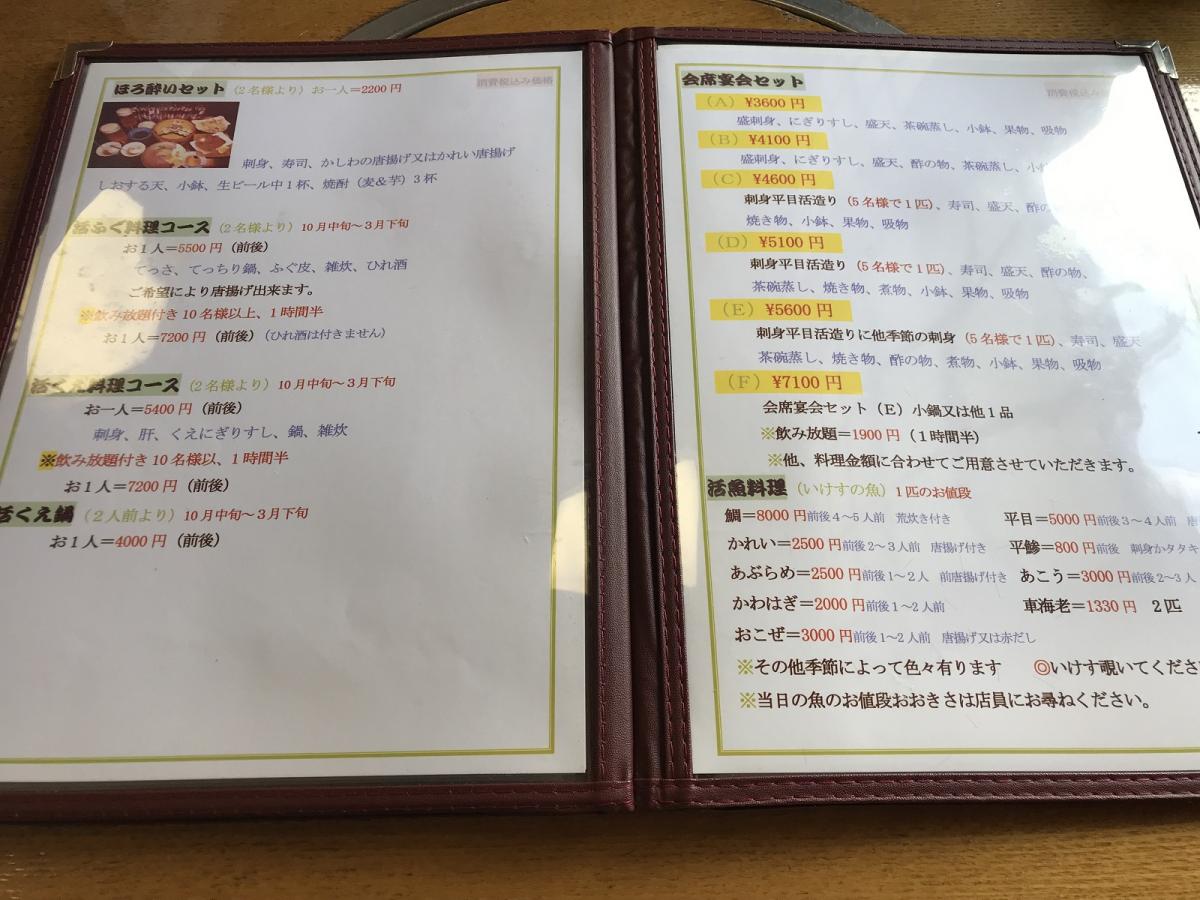 ほろ酔いセット（2名様より）お一人＝2200円
消費税込み価格
刺身、寿司、かしわの唐揚げ又はかれい唐揚げ
しおする天、小鉢、生ビール中1杯、焼酎（麦＆芋）3杯
活ふぐ料理コース（2名様より）10月中旬～3月下旬
お1人＝5500円（前後）
てっさ、てっちり鍋、ふぐ皮、雑炊、ひれ酒
ご希望により唐揚げ出来ます。
※飲み放題付き10名様以上、1時間半
お1人＝7200円（前後）（ひれ酒は付きません）
活くえ料理コース（2名様より）10月中旬～3月下旬
お一人＝5400円（前後）
刺身、肝、くえにぎりすし、鍋、雑炊
※飲み放題付き10名様以、1時間半
お1人＝7200円（前後）
活くえ鍋（2人前より）10月中旬～3月下旬
お1人＝4000円（前後）
会席宴会セット
消費税込み
（A）¥3600円
盛刺身、にぎりすし、盛天、茶碗蒸し、小鉢、果物、吸物
（B）¥4100円
盛刺身、にぎりすし、盛天、酢の物、茶碗蒸し、
（C）¥4600円
刺身平目活造り（5名様で1匹）、寿司、盛天、酢
焼き物、小鉢、果物、吸物
（D）¥5100円
刺身平目活造り（5名様で1匹）、寿司、盛天、酢の物、
茶碗蒸し、焼き物、煮物、小鉢、果物、吸物
（E）¥5600円
刺身平目活造りに他季節の刺身（5名様で1匹）、寿司、盛天
茶碗蒸し、焼き物、酢の物、煮物、小鉢、果物、吸物
（F）¥7100円
会席宴会セット（E）小鍋又は他1品
※飲み放題＝1900円（1時間半）
※他、料理金額に合わせてご用意させていただきます。
活魚料理（いけすの魚）1匹のお値段
鯛＝8000円前後4～5人前 荒炊き付き 平目＝5000円前後3～4人前
かれい＝2500円前後2～3人前 唐揚げ付き 平鯵＝800円前後 刺身かタタキ
あぶらめ＝2500円前後1～2人 前唐揚げ付き あこう＝3000円前後2～3人
かわはぎ＝2000円前後1～2人前 車海老＝1330円 2匹
おこぜ＝3000円前後1～2人前 唐揚げ又は赤だし
※その他季節によって色々有ります ◎いけす覗いてくださ
※当日の魚のお値段おおきさは店員にお尋ねください。